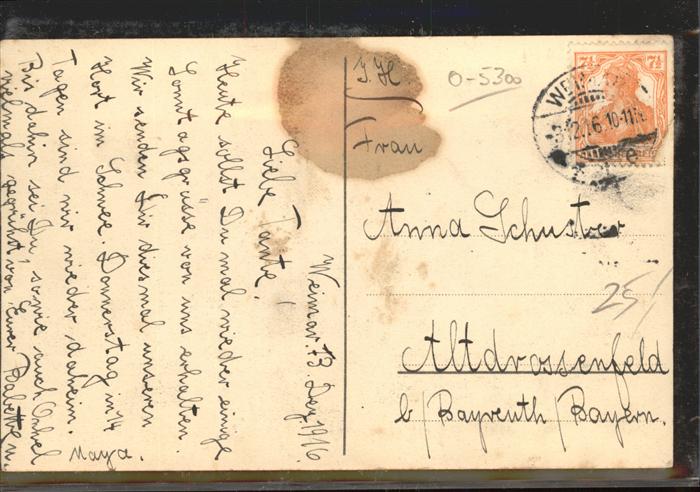 Weimar 13 Dez. 1916.
Liebe Tante!
Heute sollst Du mal wieder einige
Sonntagsgrüsse von uns erhalten.
Wir senden Dir diesmal unseren
Hort im Schnee. Donnerstag in 14
Tagen sind wir wieder daheim.
Bis dahin sei Du, sowie auch Onkel
vielmals gegrüßt von Eurer Babetten.
Maya.
I. H
Frau
Anna Schuster
Altdrossenfeld
b/Bayreuth/Bayern.
0-5300
25/
7½ 7½
10-11½